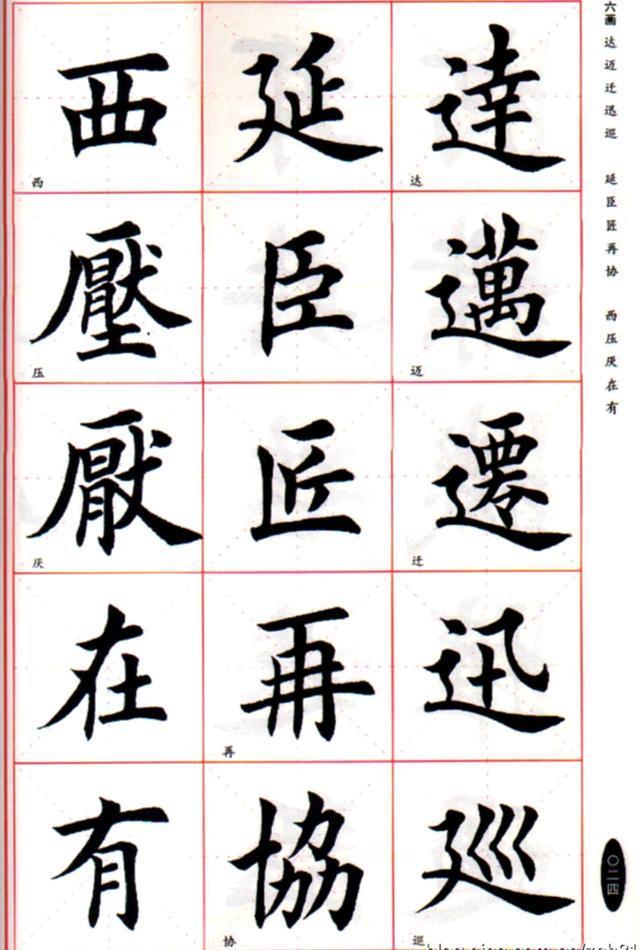 六画
达迈迁迅巡
延臣匠再协
西压厌在有
達
达
邁
迈
遷
迁
迅
巡
巡
延
臣
匠
再
再
協
协
西
西
壓
压
厭
厌
在
有
〇二四